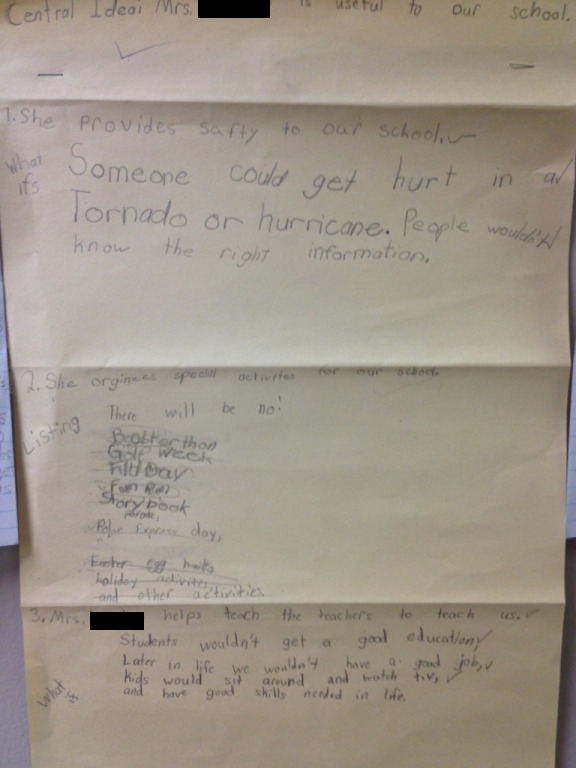 Central Idea: Mrs. is useful to our school.
1. She provides safty to our school.
What ifs
Someone could get hurt in a
Tornado or hurricane. People wouldn't
know the right information.
2. She orginees special activites for our school
Listing
There will be no:
Boosterthon
Golf week
Fun Run
Storybook
parade,
Polar Express day,
Easter egg hunts
holiday activites
and other activities
3. Mrs. helps teach the teachers to teach us.
What ifs
Students wouldn't get a good education,
Later in life we wouldn't have a good job,
kids would sit around and watch t.v,
and have good skills needed in life.